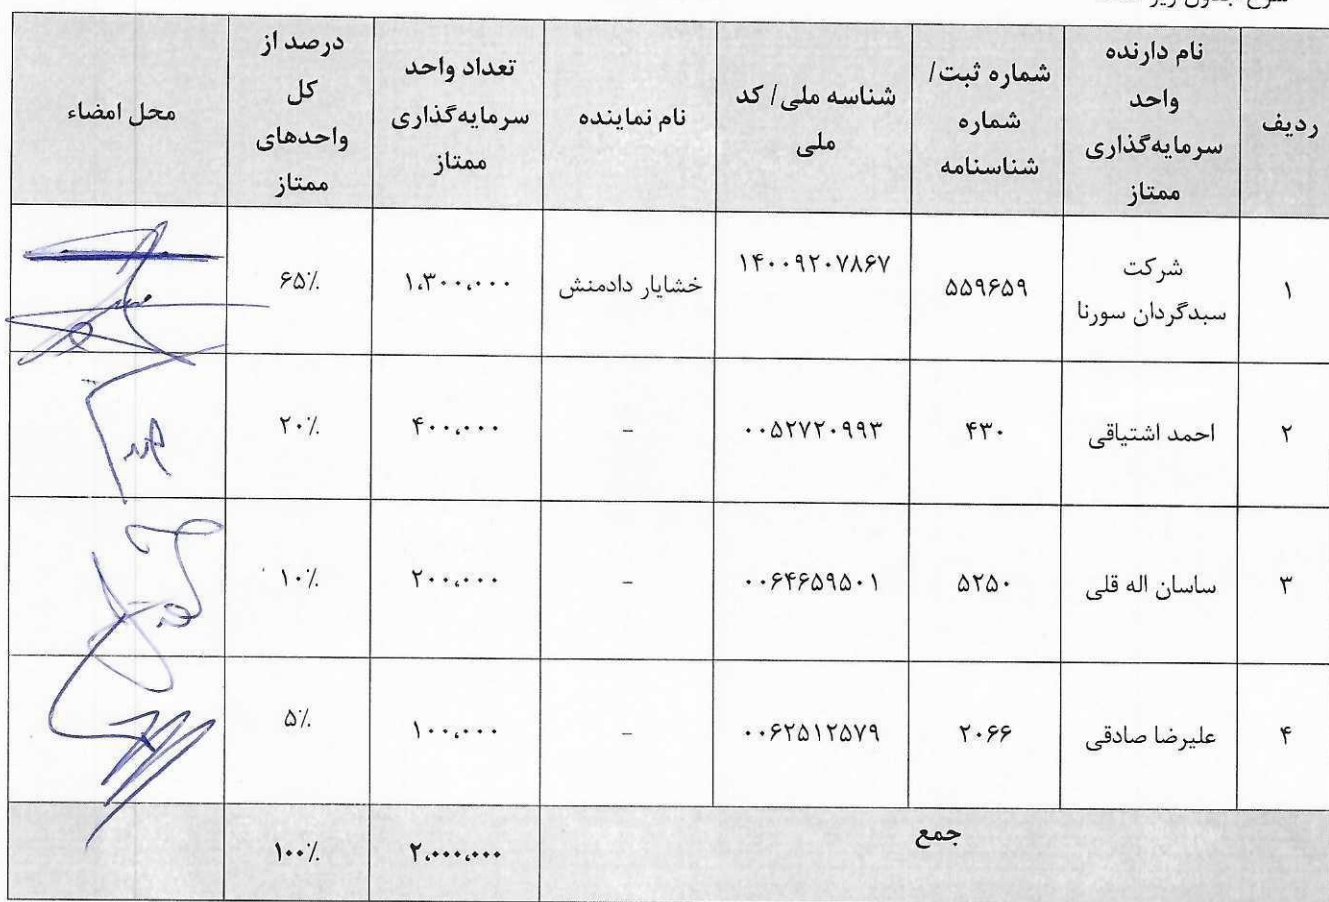 شرح جدول زیر
ردیف
نام دارنده
واحد
سرمایه‌گذاری
ممتاز
شماره ثبت/
شماره
شناسنامه
شناسه ملی/ کد
ملی
نام نماینده
تعداد واحد
سرمایه‌گذاری
ممتاز
درصد از
کل
واحدهای
ممتاز
محل امضاء
۱
شرکت
سبدگردان سورنا
۵۵۹۶۵۹
۱۴۰۰۹۲۰۷۸۶۷
خشایار دادمنش
۱،۳۰۰،۰۰۰
۶۵٪
۲
احمد اشتیاقی
۴۳۰
۰۰۵۲۷۲۰۹۹۳
-
۴۰۰،۰۰۰
۲۰٪
۳
ساسان اله قلی
۵۲۵۰
۰۰۶۴۶۵۹۵۰۱
-
۲۰۰،۰۰۰
۱۰٪
۴
علیرضا صادقی
۲۰۶۶
۰۰۶۲۵۱۲۵۷۹
-
۱۰۰،۰۰۰
۵٪
جمع
۲،۰۰۰،۰۰۰
۱۰۰٪